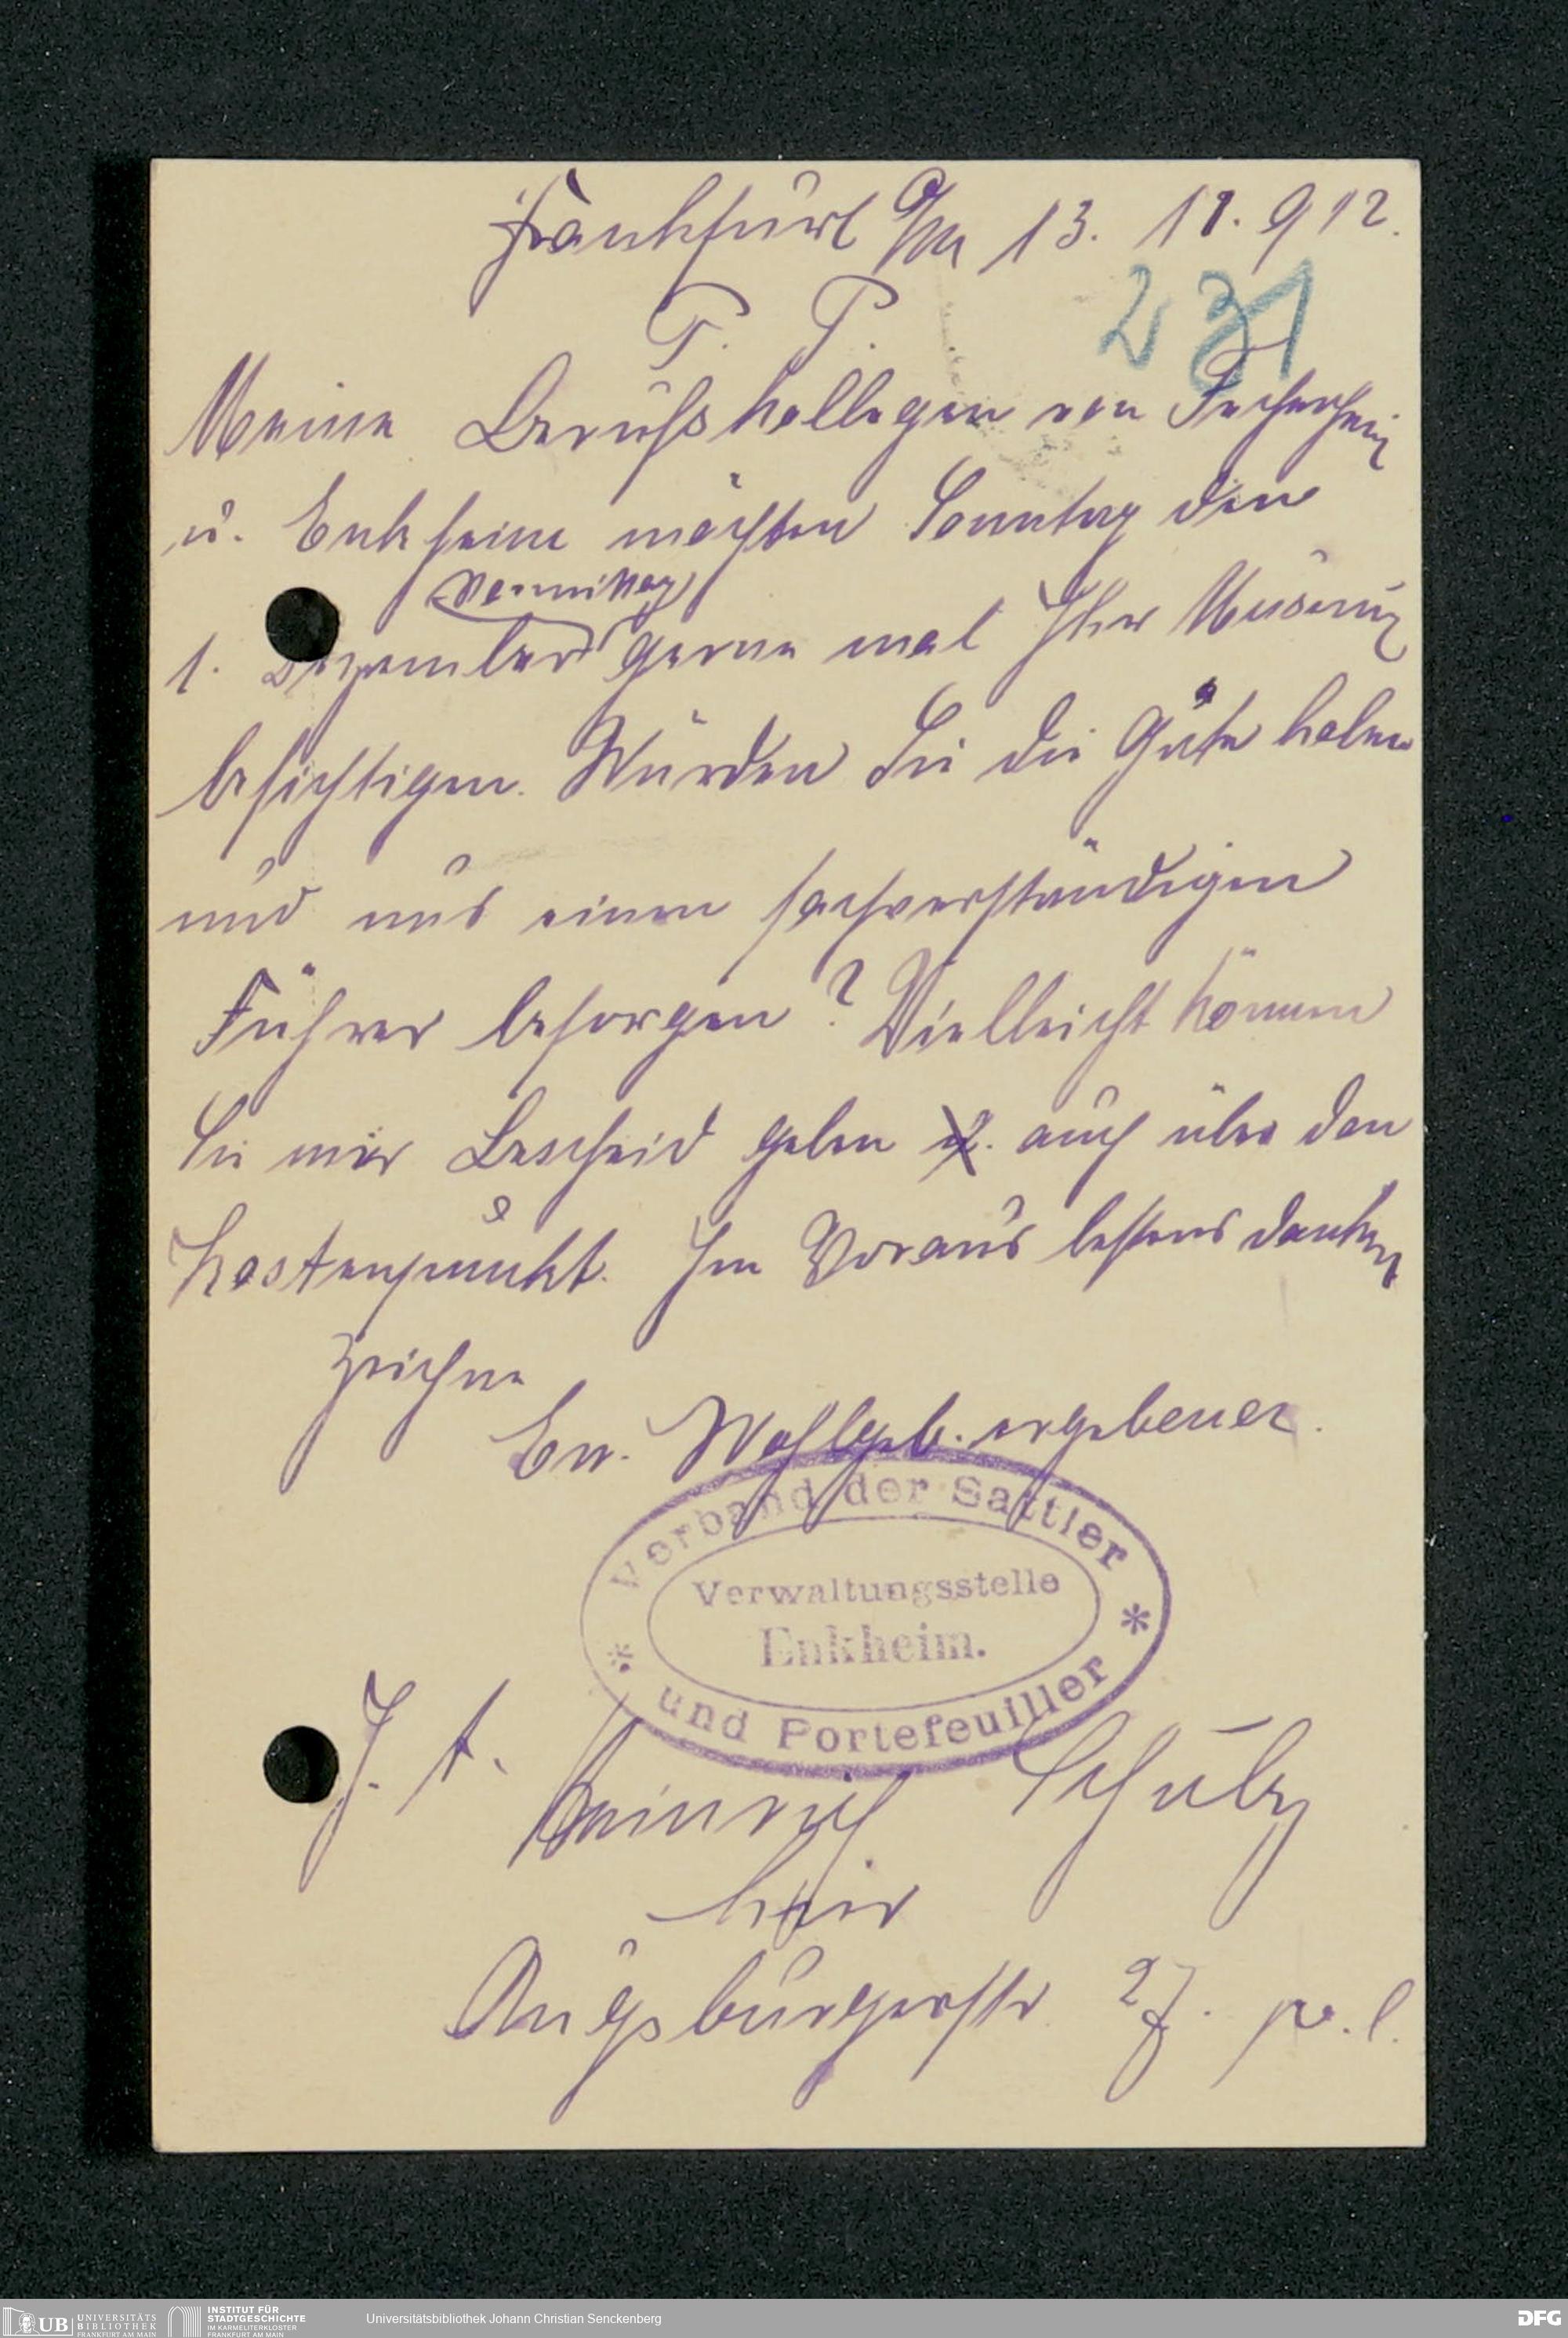 Frankfurt a/M 13. 11. 912.
P. P.
231
Meine Berufskollegen von Fechenheim
u. Enkheim möchten Sonntag den
Vormittag
1. Dezember gerne mal Ihr Museum
besichtigen. Würden Sie die Güte haben
und uns einen sachverständigen
Führer besorgen? Vielleicht können
Sie mir Bescheid geben auch über den
Kostenpunkt. Im Voraus bestens dankend
zeichne
Ew. Wohlgeb. ergebener.
Verband der Sattler
Verwaltungsstelle
Enkheim.
und Portefeuiller
J. A.
Heinrich Schulz
hier
Augsburgerstr 27. p. l.
UB UNIVERSITÄTS
BIBLIOTHEK
FRANKFURT AM MAIN
INSTITUT FÜR
STADTGESCHICHTE
IM KARMELITERKLOSTER
FRANKFURT AM MAIN
Universitätsbibliothek Johann Christian Senckenberg
DFG